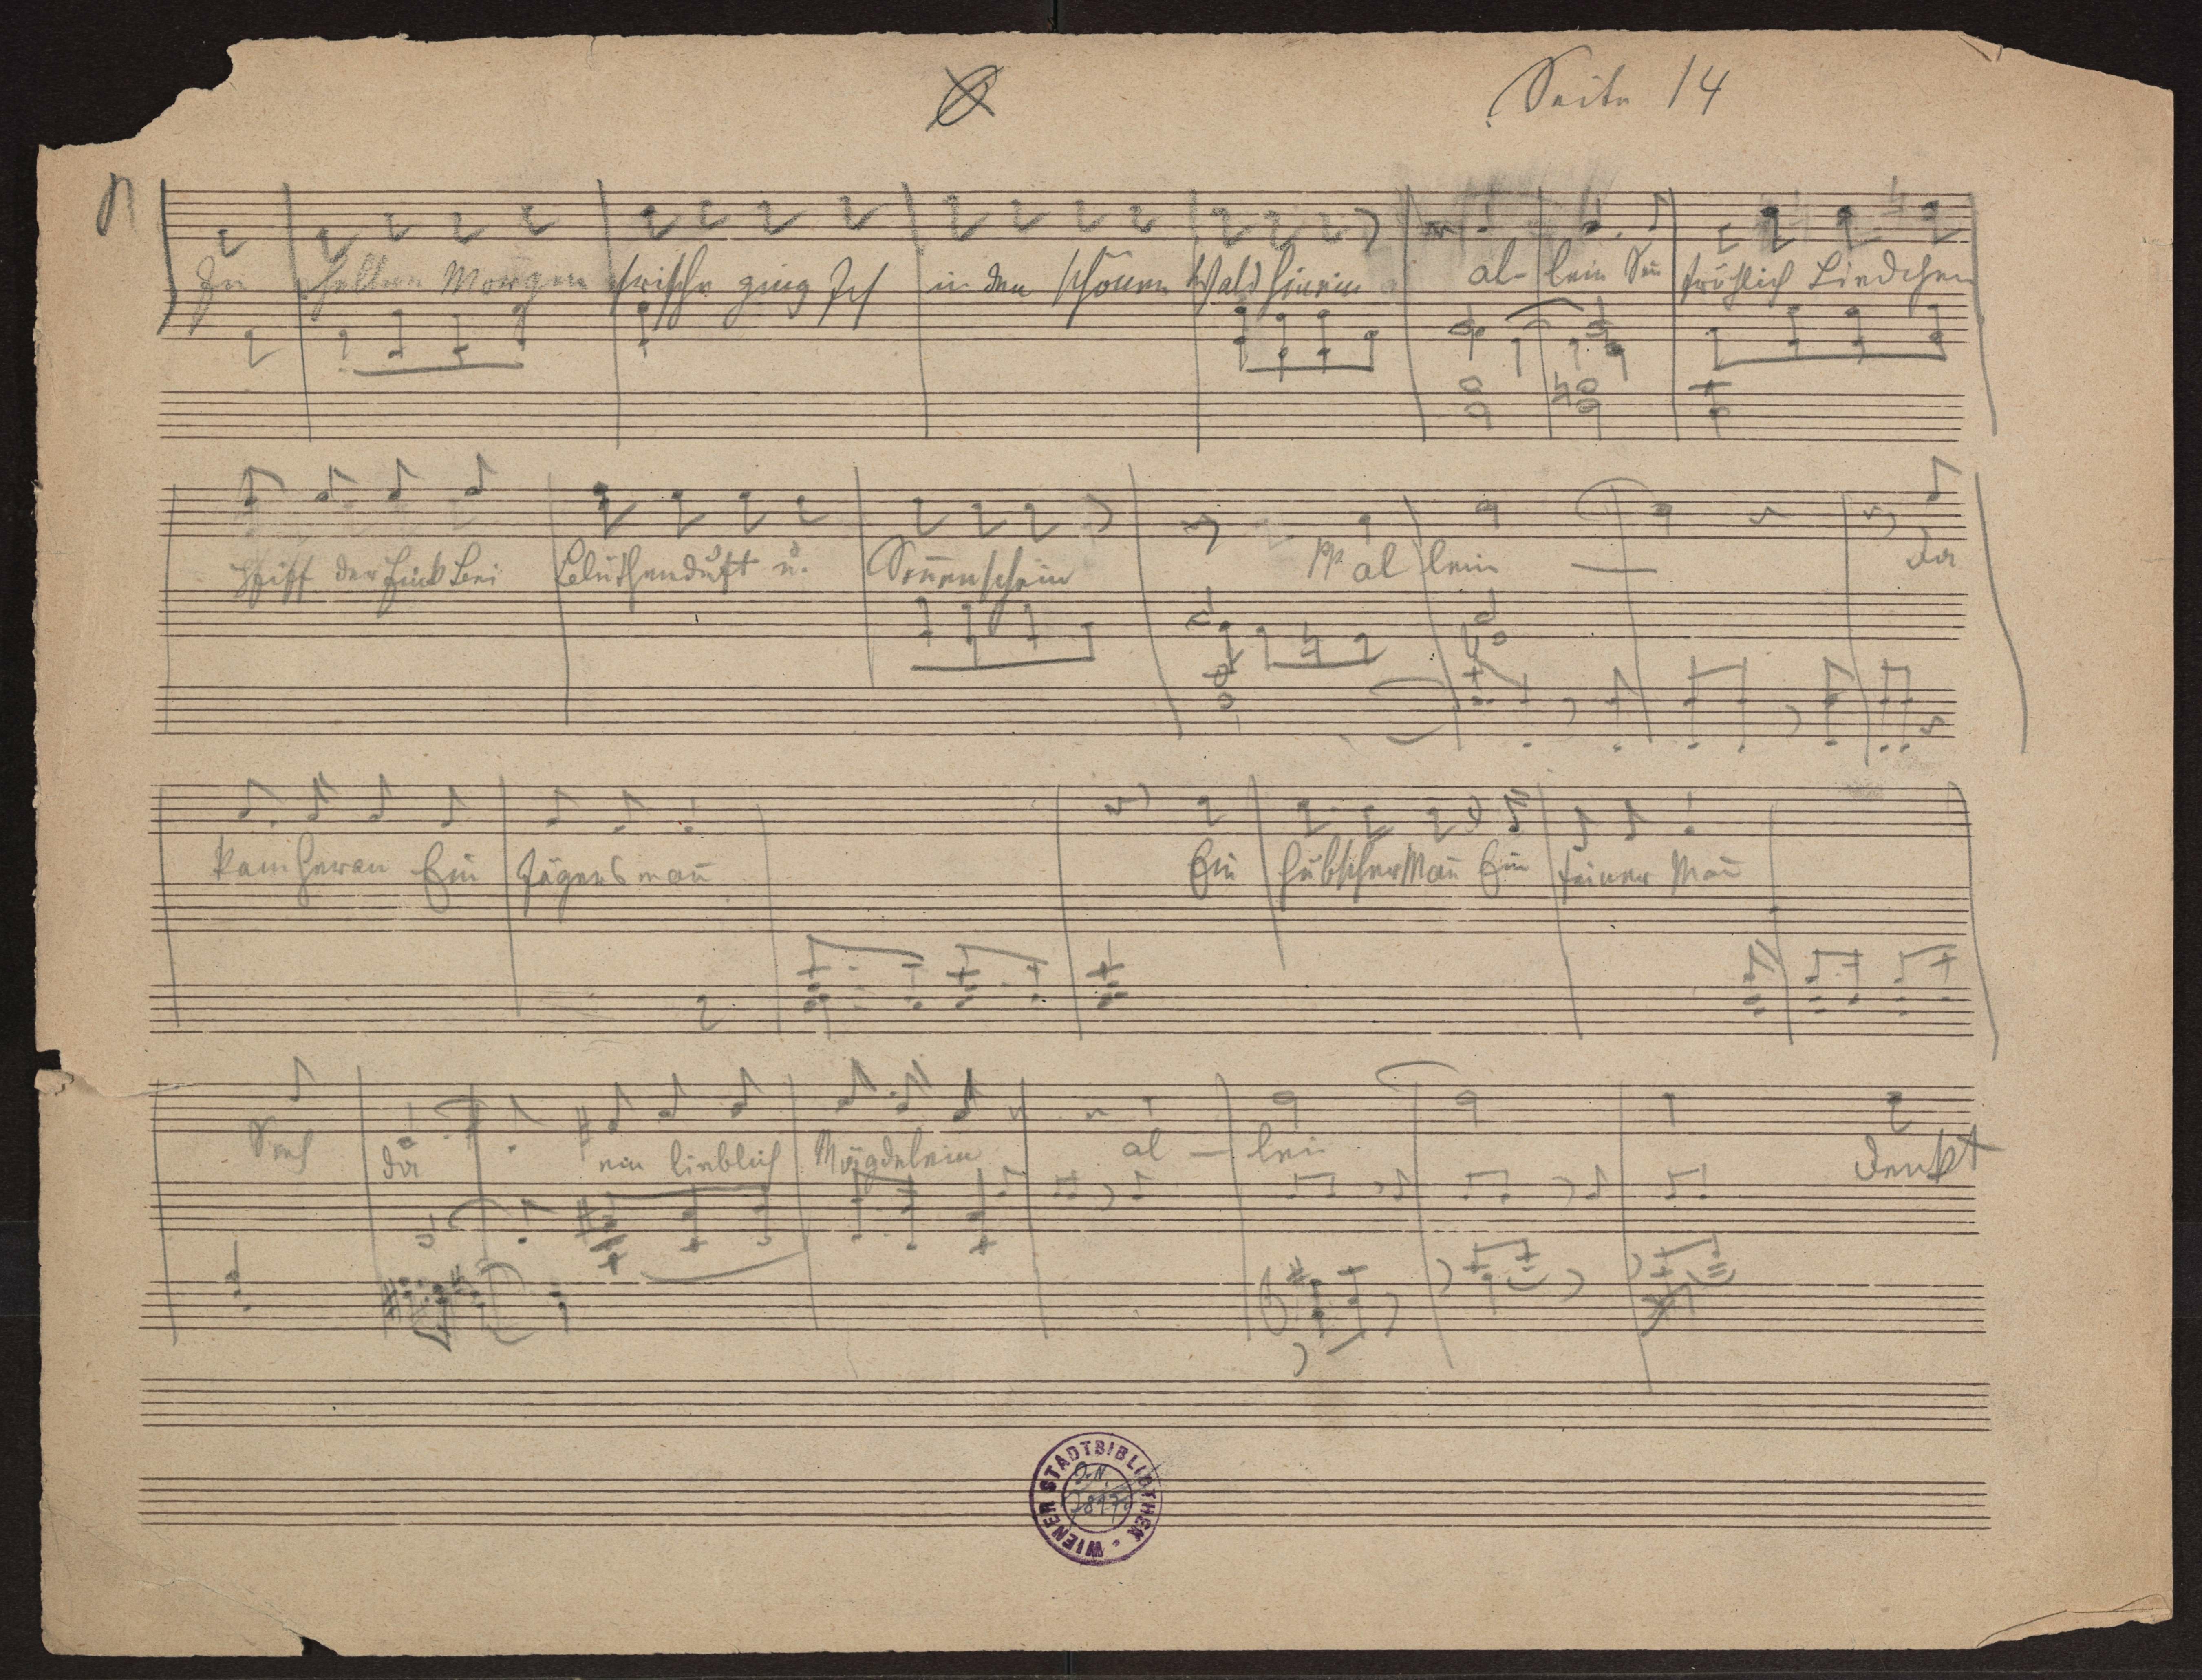 Seite 14
In hellen Morgen frische ging Ich in den schönen Wald hinein al- lein Sein fröhlich Liedchen
Pfiff der Fink bei Blüthenduft u. Soñenschein pp al lein — Da
kam heran Ein Jägersmañ Ein hübscher Mañ Ein feiner Mañ
Sah da ein lieblich Mägdelein al — lein Denkt
WIENER STADTBIBLIOTHEK